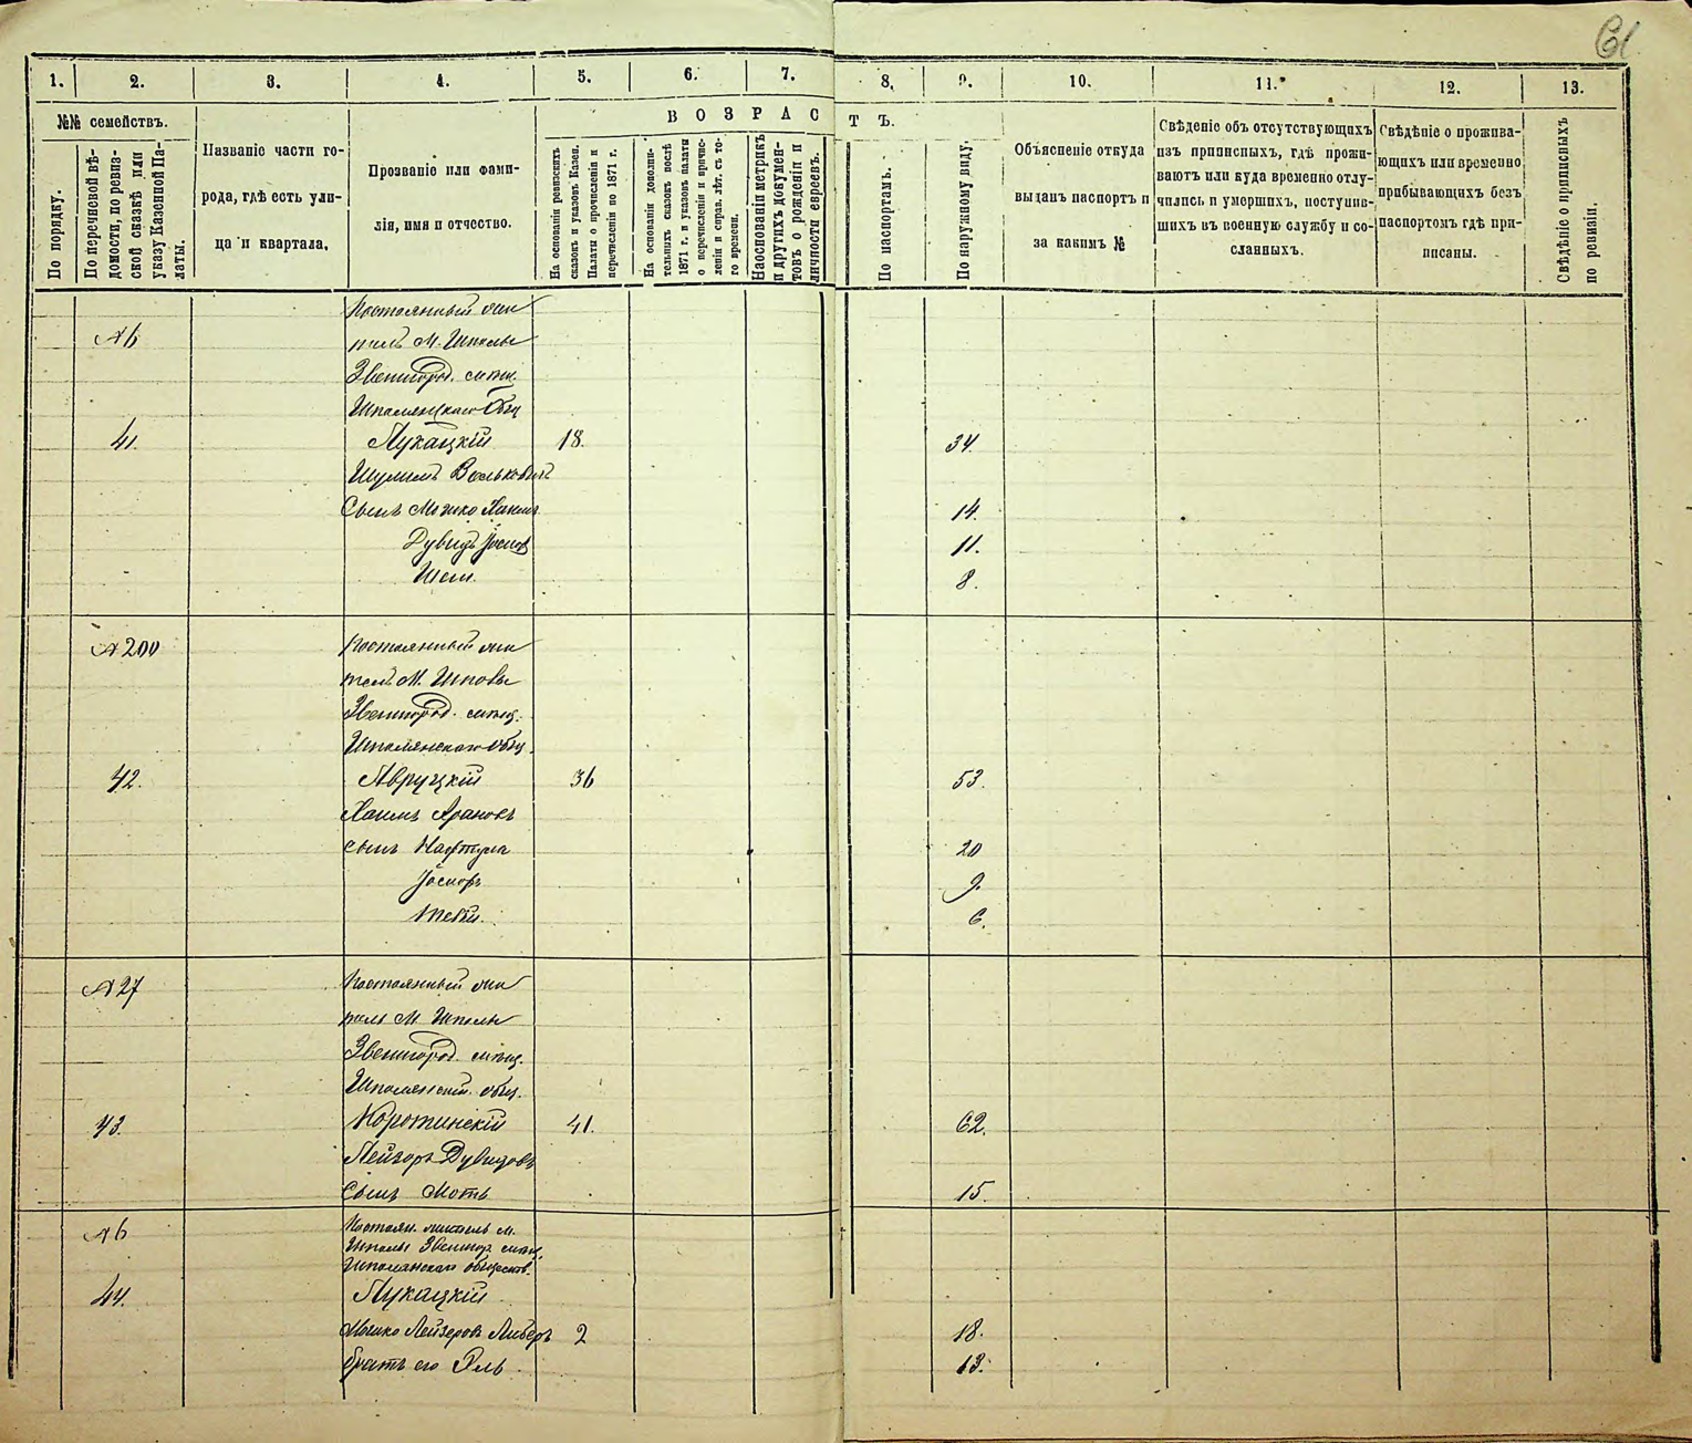 61
1. 2. 3. 4. 5. 6. 7. 8. 9. 10. 11. 12. 13.
№№ семействъ.
По порядку.
По перечневой вѣ-
домости, по ревиз-
ской сказкѣ или
указу Казенной Па-
латы.
Названіе части го-
рода, гдѣ есть ули-
ца и квартала.
Прозваніе или фами-
лія, имя и отчество.
ВОЗРАСТЪ.
На основаніи ревизскихъ
сказокъ и указовъ Казен.
Палаты о причисленіи и
перечисленіи по 1871 г.
На основаніи дополни-
тельныхъ сказокъ послѣ
1871 г. и указовъ палаты
о перечисленіи и причис-
леніи и справ. лѣт. съ то-
го времени.
На основаніи метрикъ
и другихъ докумен-
товъ о рожденіи и
личности евреевъ.
По паспортамъ.
По наружному виду.
Объясненіе откуда
выданъ паспортъ и
за какимъ №
Свѣденіе объ отсутствующихъ
изъ приписныхъ, гдѣ прожи-
ваютъ или куда временно отлу-
чились и умершихъ, поступив-
шихъ въ военную службу и со-
сланныхъ.
Свѣдѣніе о прожива-
ющихъ или временно
прибывающихъ безъ
паспортомъ гдѣ при-
писаны.
Свѣдѣніе о приписныхъ
по ревизіи.
Постоянный жи
№ 6 тель М. Шполы
Звенигород. мѣщ.
Шполянскаго Общ
41. Лукацкій 18. 34.
Шулимъ Вольковичъ
Сынъ Мошко Хаимъ 14.
Дувидъ Іосиф 11.
Шая. 8.
№ 200 Постоянный жи
тель М. Шполы
Звенигород. мѣщ.
Шполянскаго общ.
42. Авруцкій 36 53.
Хаимъ Арановъ
сынъ Нафтула 20
Іосифъ 9.
6.
№ 27 Постоянный жи
тель М Шполы
Звенигород. мѣщ.
Шполянский. общ.
43. Коротинскій 41. 62.
Лейзоръ Дувидовъ
Сынъ Мотъ 15.
№ 6 Постоян. житель м.
Шполы Звенигор мѣщ.
Шполянскаго обществ.
44. Лукацкій
Мошко Лейзеровъ Либеръ 2 18.
братъ его Эль 13.